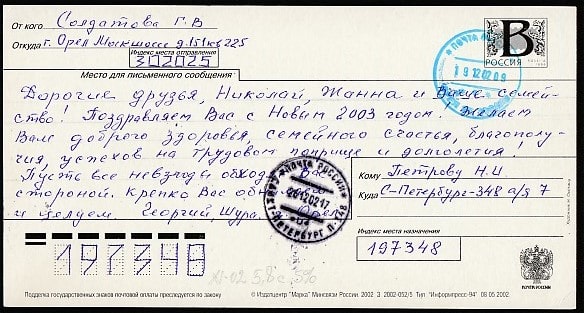 От кого Солдатова Г. В
Откуда г. Орел Москшоссе д. 151 кв 225
Индекс места отправления
302025
Место для письменного сообщения
B
РОССИЯ
ПОЧТА
19 12 02 09
Дорогие друзья, Николай, Жанна и Ваше семей-
ство! Поздравляем Вас с Новым 2003 годом! Желаем
Вам доброго здоровья, семейного счастья, благополу-
чия, успехов на трудовом поприще и долголетия!
Пусть все невзгоды обходят Вас
стороной. Крепко Вас
и целуем. Георгий, Шура. г. Орел
ПОЧТА РОССИИ
26120217
САНКТ-ПЕТЕРБУРГ П-348
Кому Петрову Н. И.
Куда С-Петербург-348 а/я 7
Индекс места назначения
197348
197348
XI-02
ПОЧТА РОССИИ
Подделка государственных знаков почтовой оплаты преследуется по закону
© Издатцентр "Марка" Минсвязи России. 2002 З. 2002-052/5 Тип. "Информпресс-94" 08.05.2002.